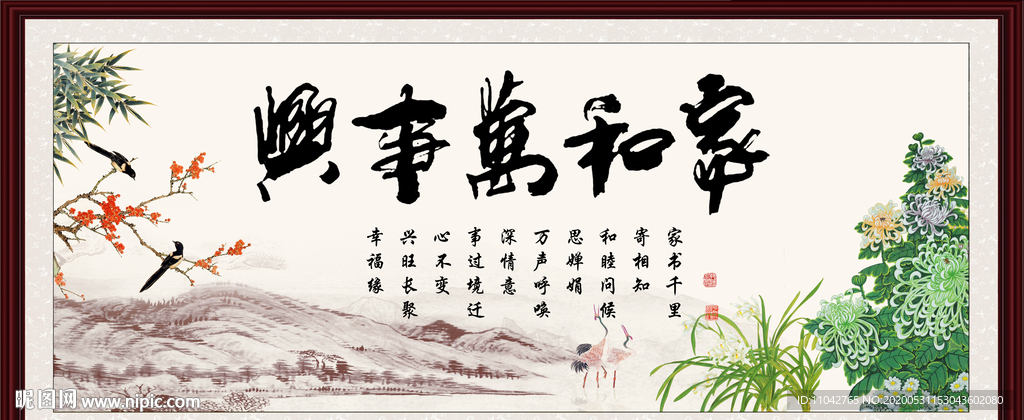 家和萬事興
家书千里
寄相知
和睦问候
思婵娟
万声呼唤
深情意
事过境迁
心不变
兴旺长聚
幸福缘
昵图网 www.nipic.com
ID:11042765 NO:20200531153043602080